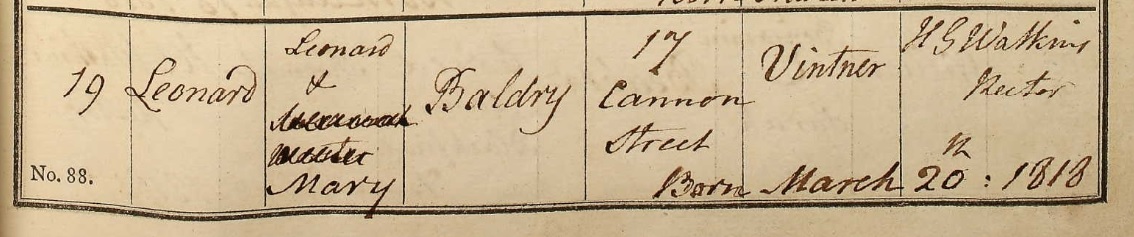 19
No. 88.
Leonard
Leonard
&
Mary
Baldry
17
Cannon
Street
Vintner
H G Watkins
Rector
Born March 20th : 1818